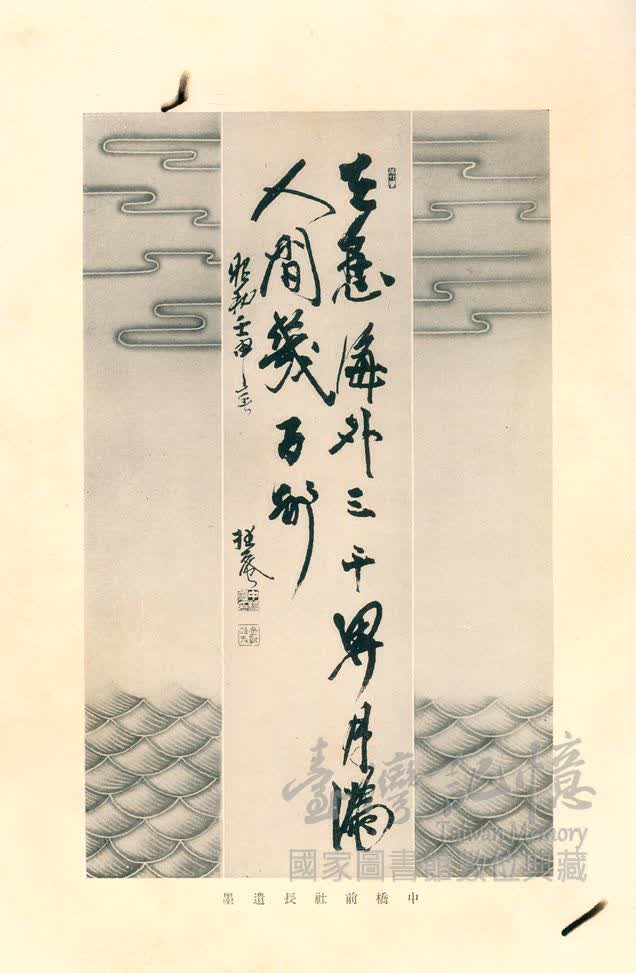 海外三千界月滿
人間幾百
昭和壬申
中橋前社長遺墨
臺灣記憶
Taiwan Memory
國家圖書館數位典藏